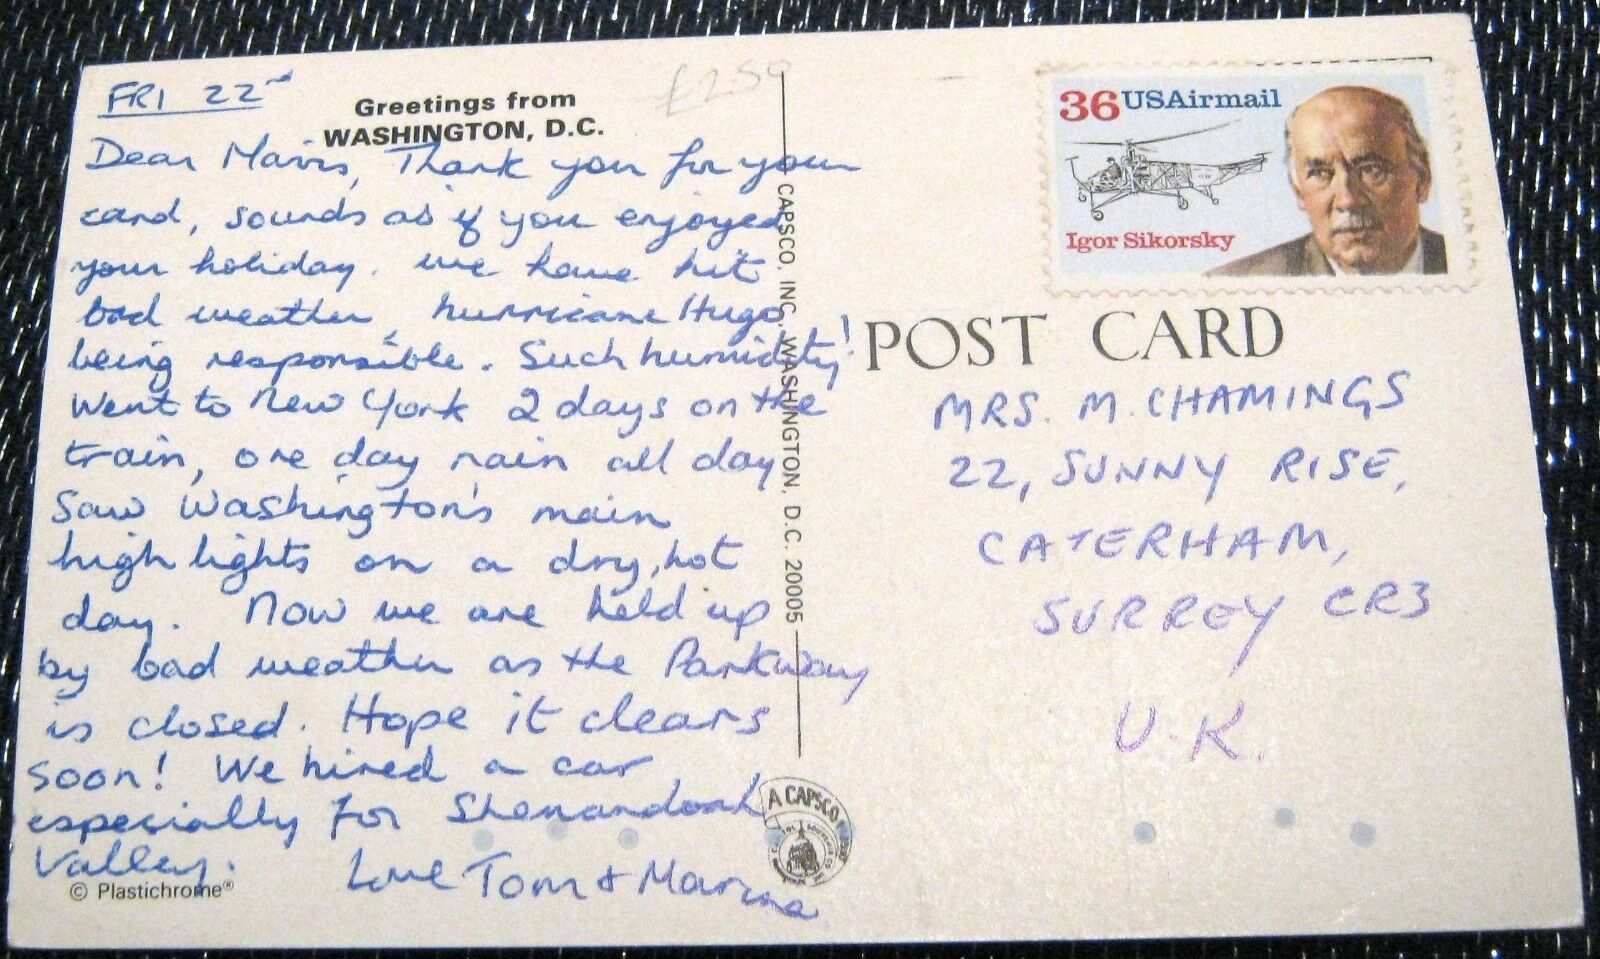 FRI 22nd
Greetings from
WASHINGTON, D.C.
£2.50
Dear Mavis, Thank you for your
card, sounds as if you enjoyed
your holiday. We have hit
bad weather, hurricane Hugo
being responsible. Such humidity!
Went to New York 2 days on the
train, one day rain all day
Saw Washington's main
high lights on a dry, hot
day. Now we are held up
by bad weather as the Parkway
is closed. Hope it clears
soon! We hired a car
especially for Shenandoah
Valley. Love Tom & Marina
© Plastichrome®
CAPSCO, INC., WASHINGTON, D.C. 20005
A CAPSCO
36 USAirmail
Igor Sikorsky
POST CARD
MRS. M. CHAMINGS
22, SUNNY RISE,
CATERHAM,
SURREY CR3
U.K.